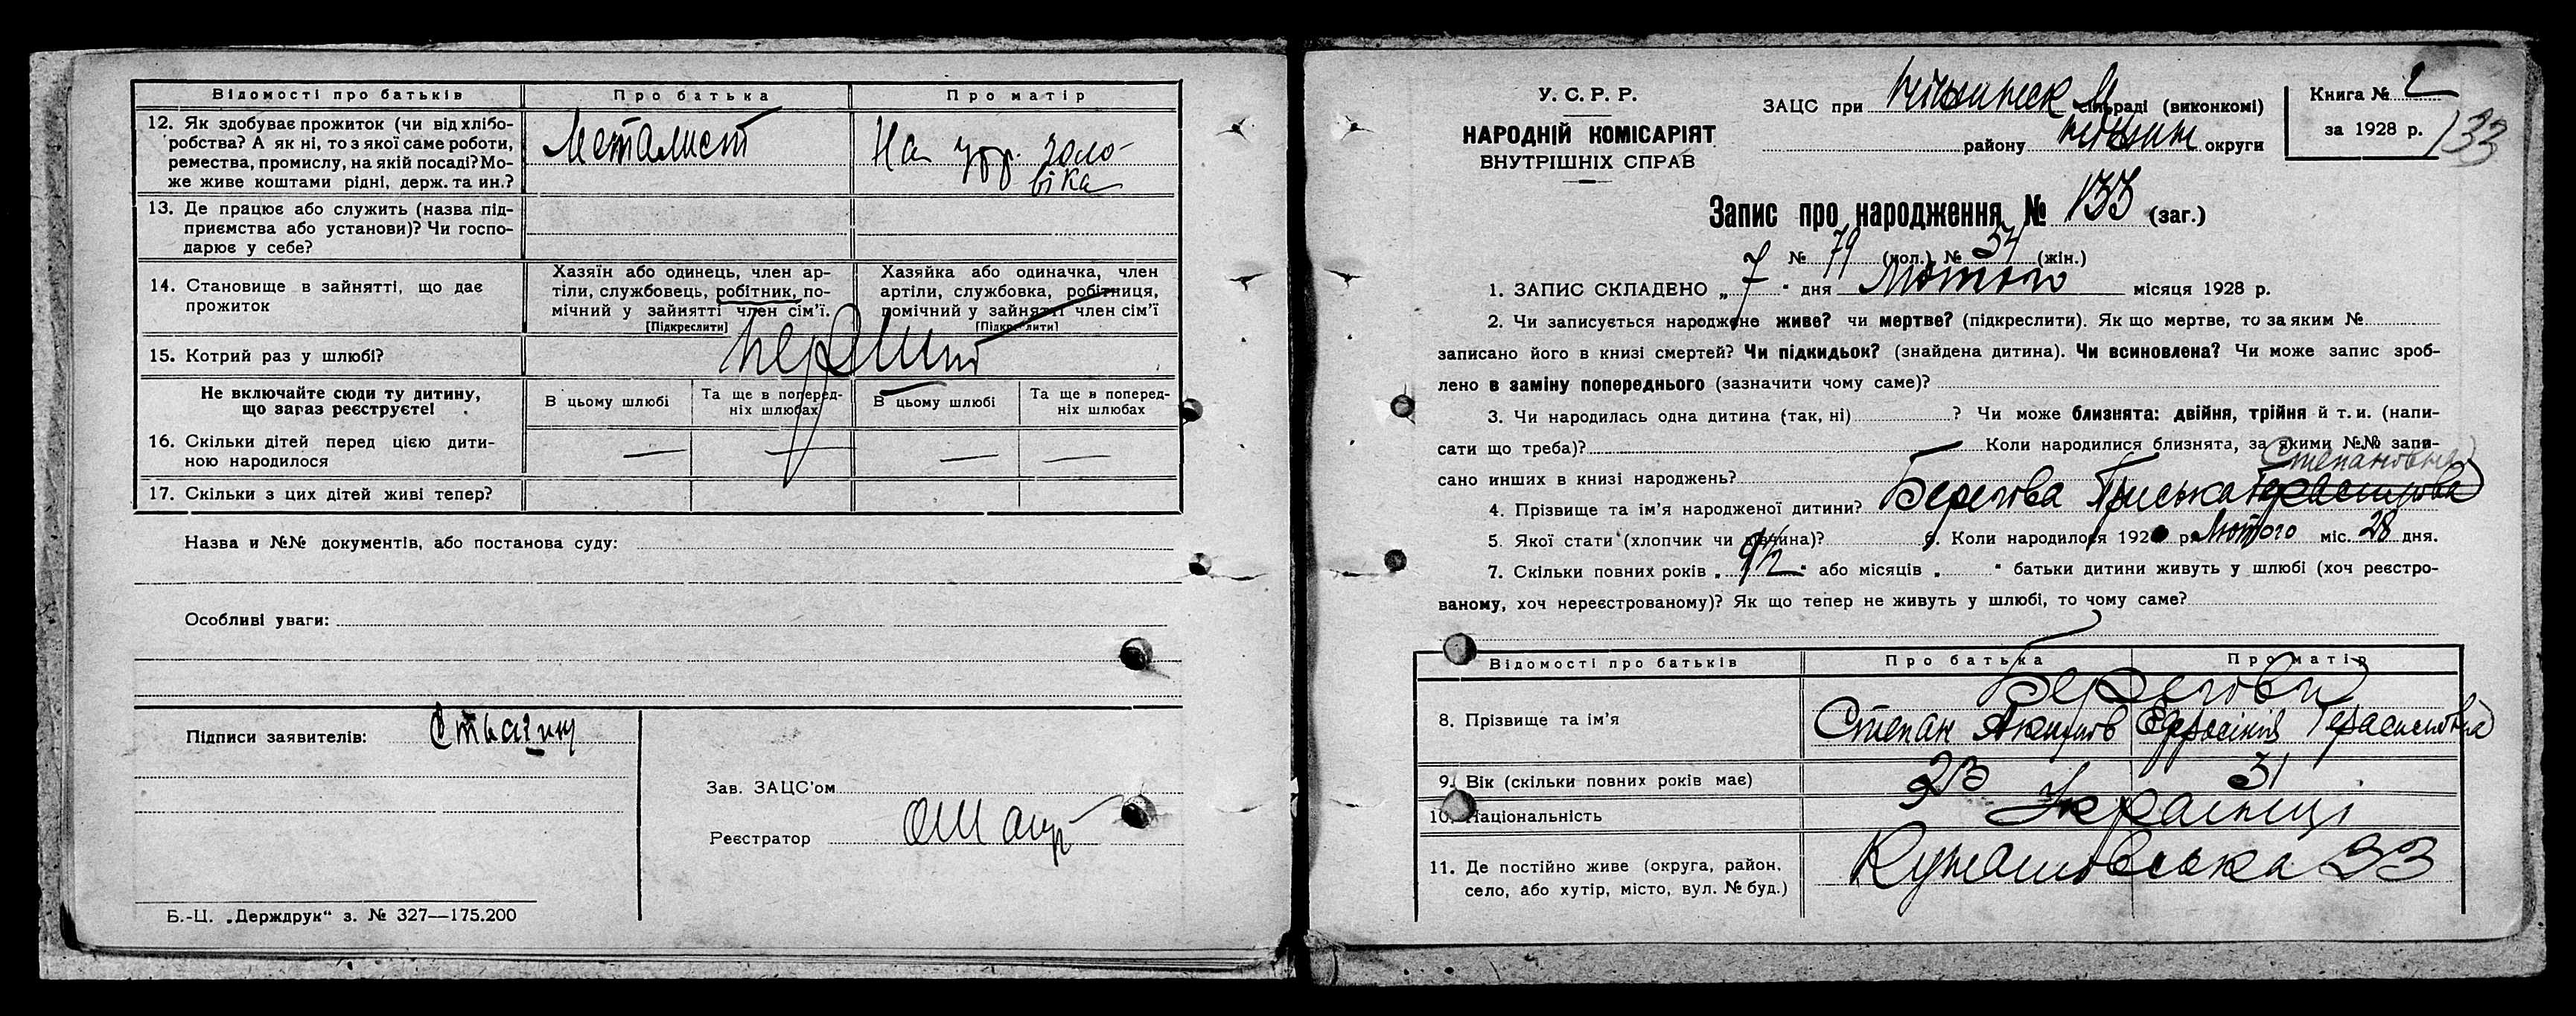 Відомості про батьків Про батька Про матір
12. Як здобуває прожиток (чи від хлібо-
робства? А як ні, то з якої саме роботи,
ремества, промислу, на якій посаді? Мо-
же живе коштами рідні, держ. та ин.?
Металист
На утр. чоло-
віка
13. Де працює або служить (назва під-
приємства або установи)? Чи госпо-
дарює у себе?
14. Становище в зайнятті, що дає
прожиток
Хазяїн або одинець, член ар-
тіли, службовець, робітник, по-
мічний у зайнятті член сім'ї.
[Підкреслити]
Хазяйка або одиначка, член
артіли, службовка, робітниця,
помічний у зайнятті член сім'ї
[Підкреслити]
15. Котрий раз у шлюбі?
перший
Не включайте сюди ту дитину,
що зараз реєструєте!
В цьому шлюбі
Та ще в поперед-
ніх шлюбах
В цьому шлюбі
Та ще в поперед-
ніх шлюбах
16. Скільки дітей перед цією дити-
ною народилося — — — —
17. Скільки з цих дітей живі тепер?
Назва и №№ документів, або постанова суду:
Особливі уваги:
Підписи заявителів:
Зав. ЗАЦС'ом
Реєстратор
Б.-Ц. „Держдрук" з. № 327—175.200
У. С. Р. Р.
НАРОДНІЙ КОМІСАРІЯТ
ВНУТРІШНІХ СПРАВ
ЗАЦС при сільраді (виконкомі)
району округи
Книга № 2
за 1928 р.
133
Запис про народження № 133 (заг.)
№ 79 (чол.) № 54 (жін.)
1. ЗАПИС СКЛАДЕНО „7" дня Лютого місяця 1928 р.
2. Чи записується народжене живе? чи мертве? (підкреслити). Як що мертве, то за яким №
записано його в книзі смертей? Чи підкидьок? (знайдена дитина). Чи всиновлена? Чи може запис зроб-
лено в заміну попереднього (зазначити чому саме)?
3. Чи народилась одна дитина (так, ні) ? Чи може близнята: двійня, трійня й т. и. (напи-
сати що треба)? Коли народилися близнята, за якими №№ запи-
сано инших в книзі народжень?
Степановна
4. Прізвище та ім'я народженої дитини? Берегова Приська
5. Якої статі (хлопчик чи дівчина)? 6. Коли народилося 192 р. Лютого міс. 28 дня.
7. Скільки повних років „ 1/2 " або місяців „ " батьки дитини живуть у шлюбі (хоч реєстро-
ваному, хоч нереєстрованому)? Як що тепер не живуть у шлюбі, то чому саме?
Відомості про батьків Про батька Про матір
Берегови
8. Прізвище та ім'я Степан Якимов Ефросінія Герасимовна
9. Вік (скільки повних років має) 23 31
10. Національність Українці
11. Де постійно живе (округа, район,
село, або хутір, місто, вул. № буд.)
Кунашовська 33